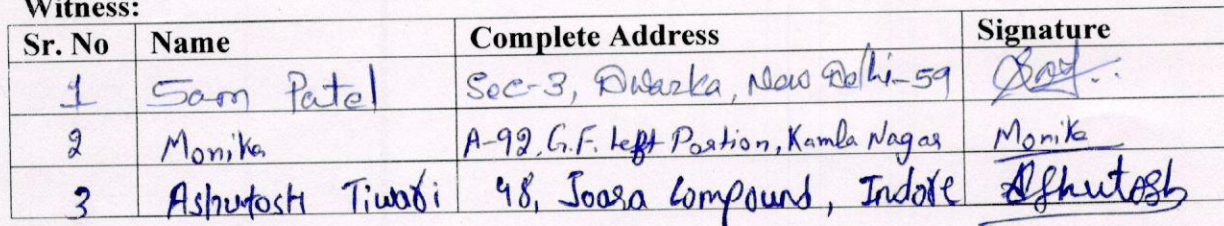 Witness:
Sr. No Name Complete Address Signature
1 Sam Patel Sec-3, Dwarka, New Delhi-59
2 Monika A-92, G.F. Left Portion, Kamla Nagar Monika
3 Ashutosh Tiwari 98, Joara Compound, Indore Ashutosh